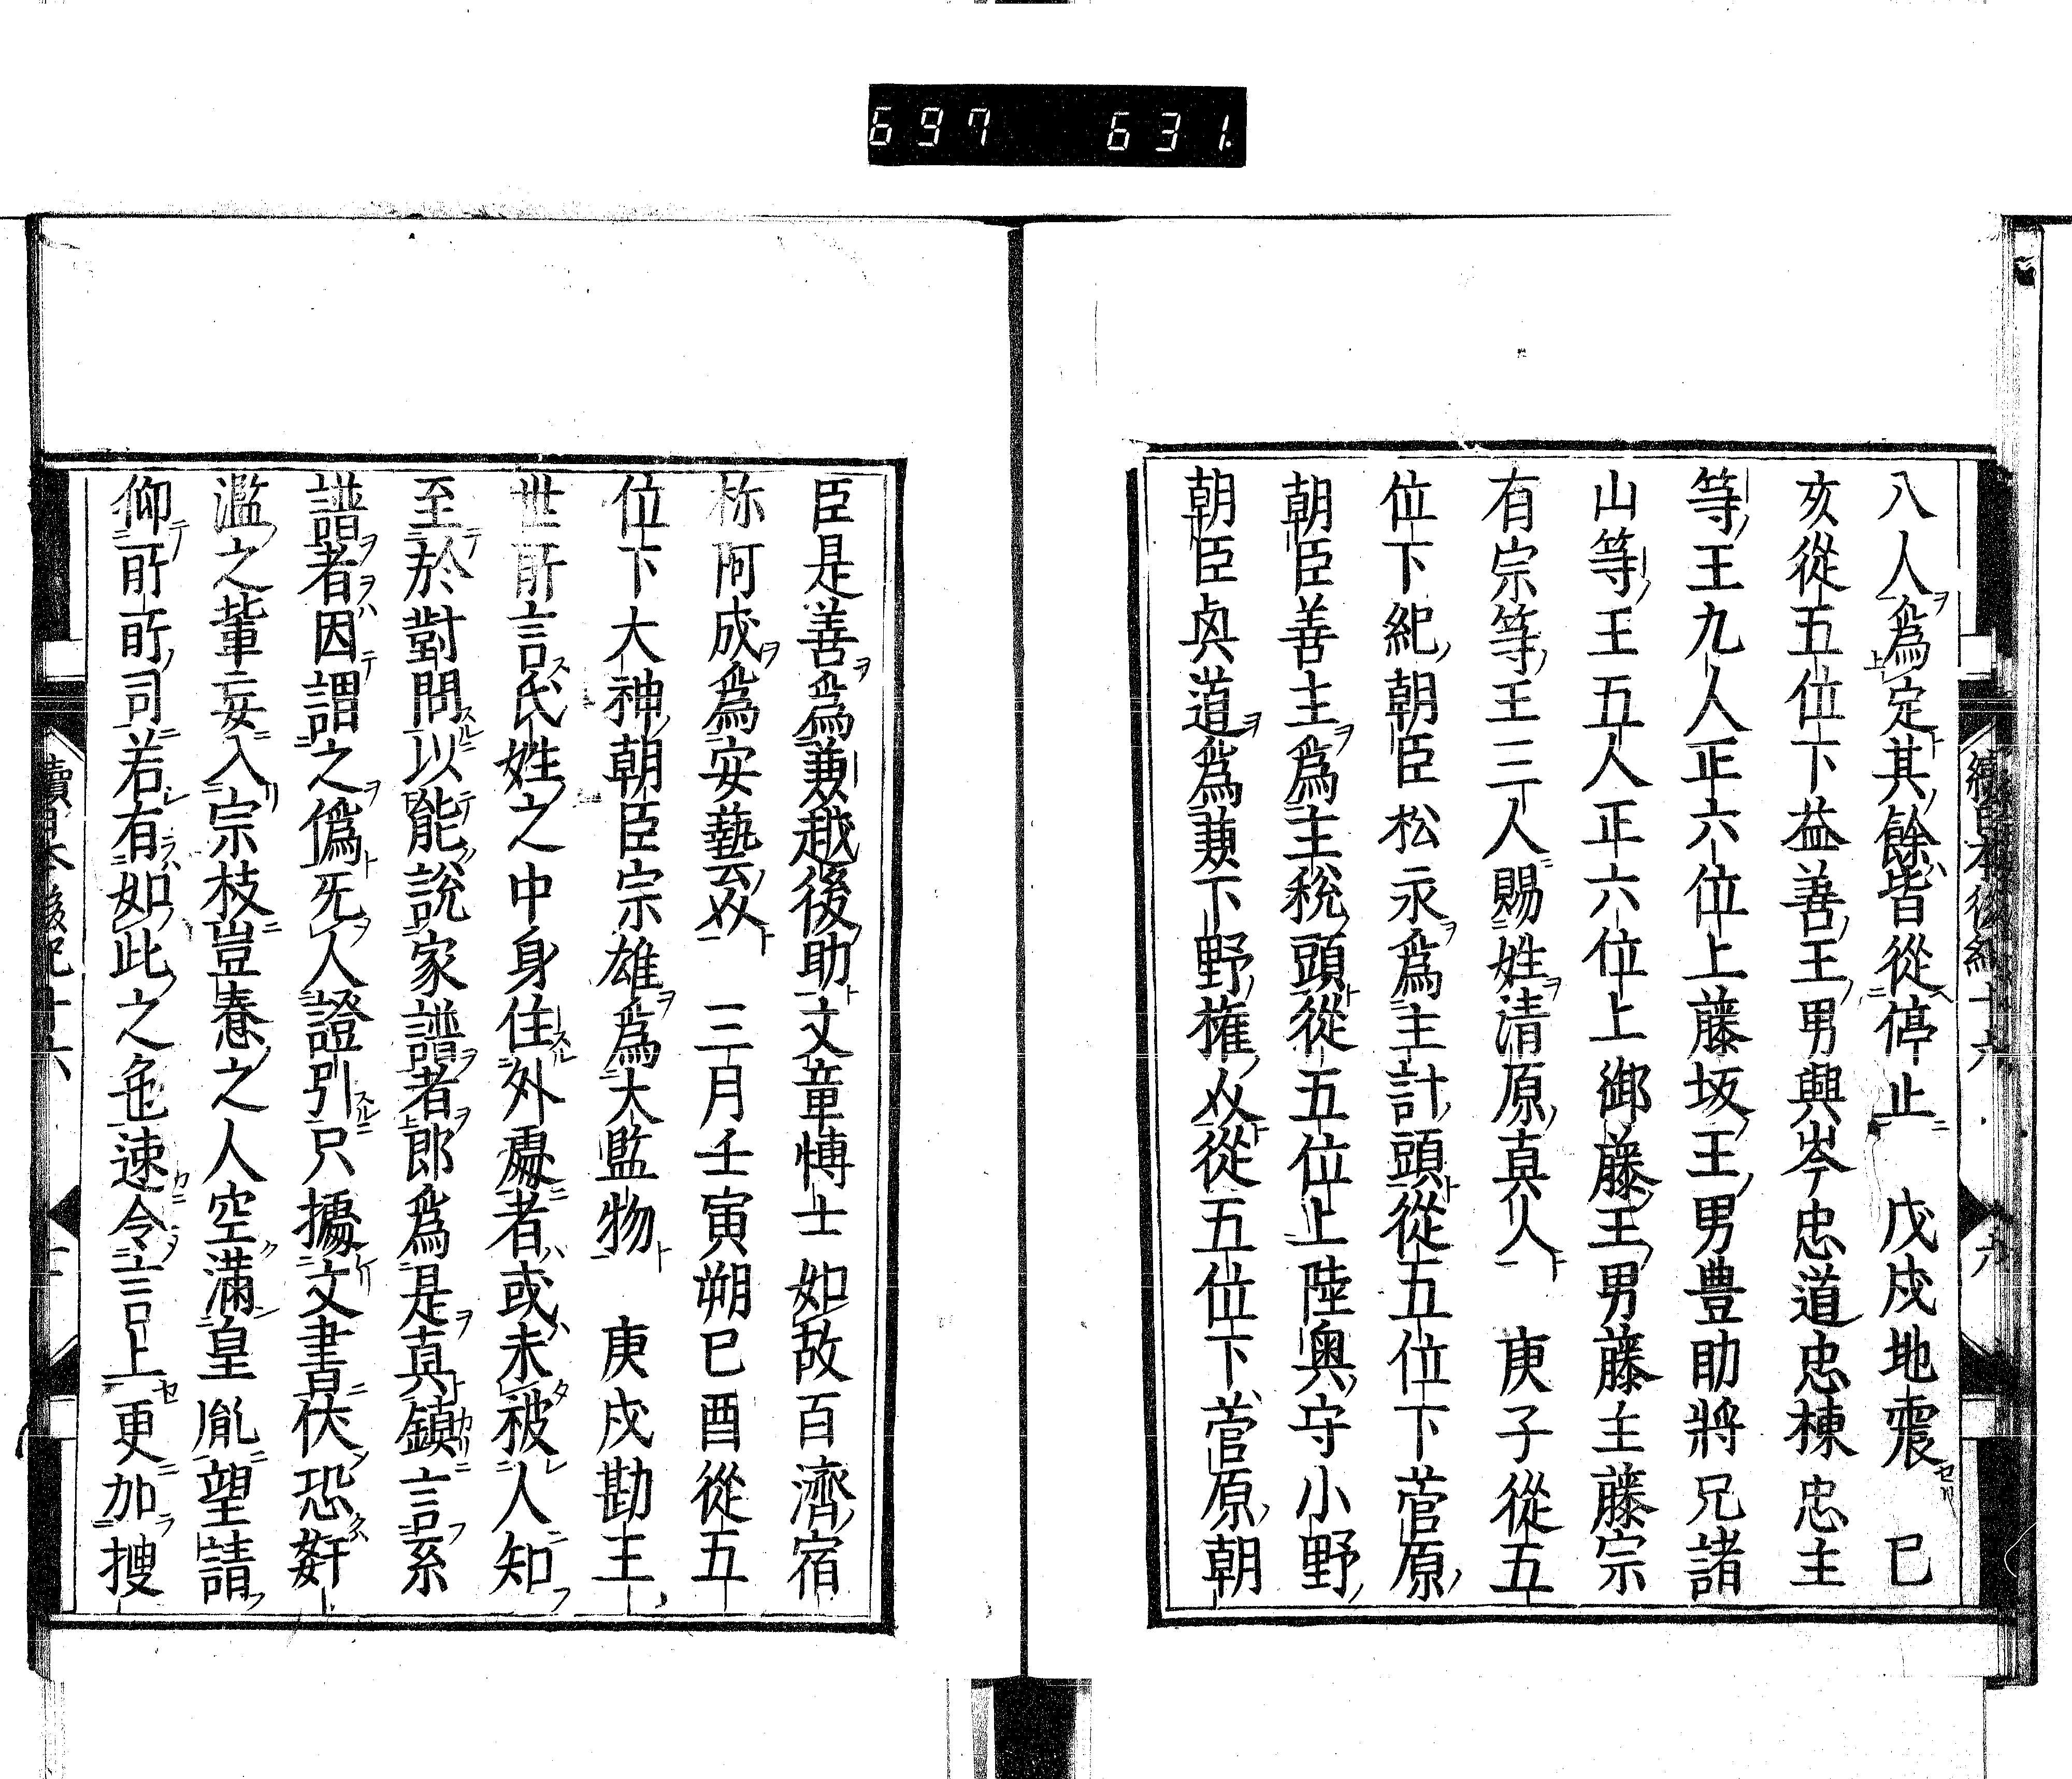 697 631.
八人爲定其餘皆從停止 戊戌地震 已
亥從五位下益善王男與岑忠道忠棟忠主
等王九人正六位上藤坂王男豊助將兄諸
山等王五人正六位上御藤王男藤主藤宗
有宗等王三人賜姓清原真人 庚子從五
位下紀朝臣松永爲主計頭從五位下菅原
朝臣善主爲主税頭從五位上陸奥守小野
朝臣興道爲兼下野權从從五位下菅原朝
臣是善爲兼越後助文章博士如故百濟宿
祢河成爲安藝从 三月壬寅朔已酉從五
位下大神朝臣宗雄爲大監物 庚戌勘王
世所言氏姓之中身住外處者或未被人知
至於對問以能說家譜者郎爲是真鎮言系
譜者因謂之僞旡人證引只據文書伏恐姧
濫之輩妄入宗枝豈惷之人空滿皇胤望請
仰所所司若有如此之色速令言上更加搜
續日本後紀十六